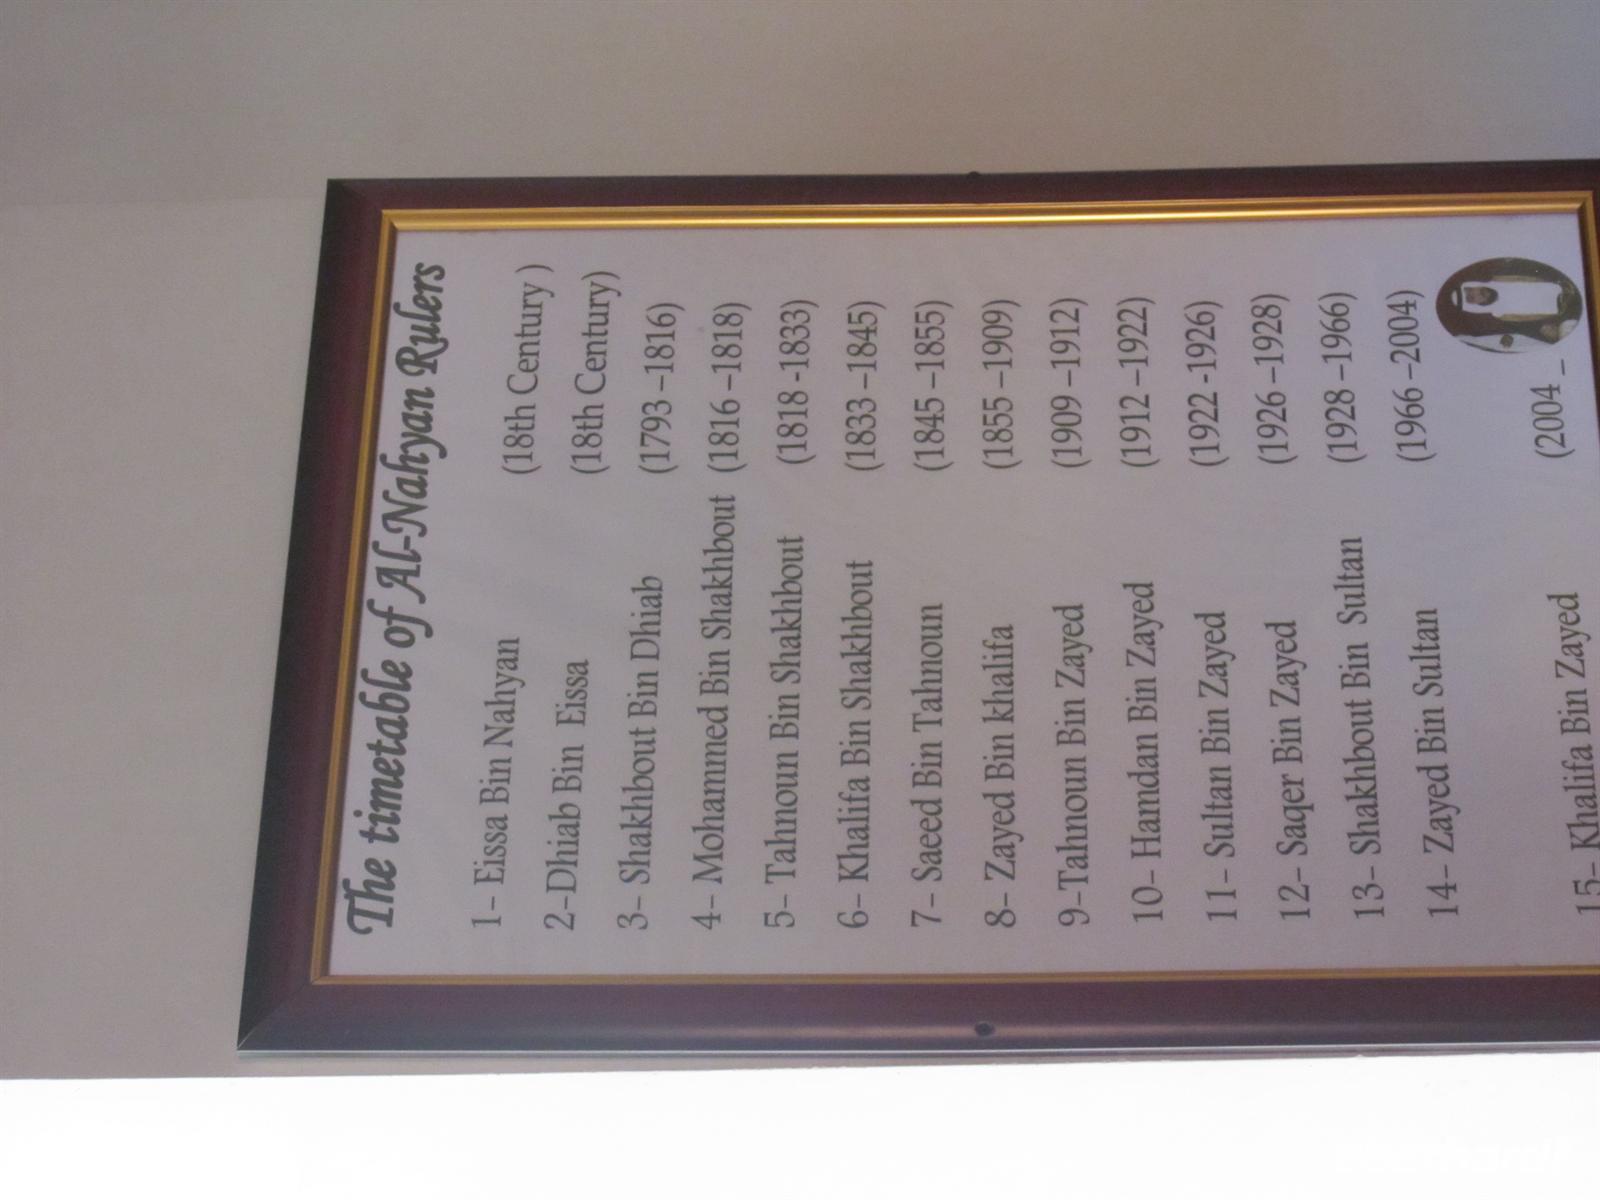 The timetable of Al-Nahyan Rulers
1- Eissa Bin Nahyan (18th Century )
2-Dhiab Bin Eissa (18th Century)
3- Shakhbout Bin Dhiab (1793 –1816)
4- Mohammed Bin Shakhbout (1816 –1818)
5- Tahnoun Bin Shakhbout (1818 -1833)
6- Khalifa Bin Shakhbout (1833 –1845)
7- Saeed Bin Tahnoun (1845 –1855)
8- Zayed Bin khalifa (1855 –1909)
9-Tahnoun Bin Zayed (1909 –1912)
10- Hamdan Bin Zayed (1912 –1922)
11- Sultan Bin Zayed (1922 -1926)
12- Saqer Bin Zayed (1926 –1928)
13- Shakhbout Bin Sultan (1928 –1966)
14- Zayed Bin Sultan (1966 –2004)
15- Khalifa Bin Zayed (2004 _